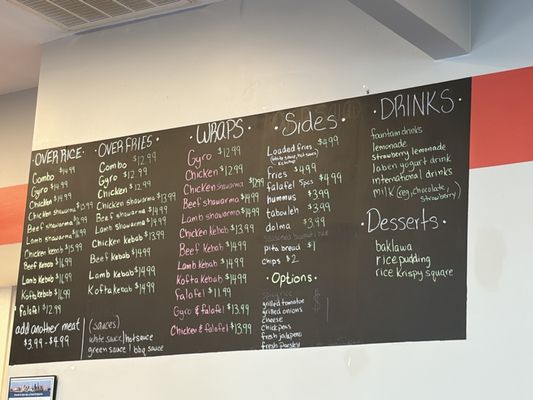 OVER RICE
Combo $14.99
Gyro $14.99
Chicken $14.99
Chicken shawarma $13.99
Beef shawarma $16.99
Lamb shawarma $16.99
Chicken kebab $15.99
Beef Kebab $16.99
Lamb Kebab $16.99
Kofta kebab $16.99
Falafel $12.99
add another meat
$3.99 - $4.99
OVER FRIES
Combo $12.99
Gyro $12.99
Chicken $12.99
Chicken shawarma $13.99
Beef shawarma $14.99
Lamb shawarma $14.99
Chicken kebab $13.99
Beef kebab $14.99
Lamb Kebab $14.99
Kofta Kebab $14.99
(sauces)
white sauce | hot sauce
green sauce | bbq sauce
WRAPS
Gyro $12.99
Chicken $12.99
Chicken shawarma $12.99
Beef shawarma $14.99
Lamb shawarma $14.99
Chicken kebab $13.99
Beef Kebab $14.99
Lamb Kebab $14.99
Kofta Kebab $14.99
Falafel $11.99
Gyro & falafel $13.99
Chicken & falafel $13.99
Sides
Loaded fries $4.99
fries $4.99
falafel 5pcs $4.99
hummus $3.99
tabouleh $3.99
dolma $3.99
pita bread $1
chips $2
Options
grilled tomatoes
grilled onions
cheese
Chickpeas
fresh jalapeños
fresh parsley
DRINKS
fountain drinks
lemonade
strawberry lemonade
labeni yogurt drink
international drinks
milk (reg, chocolate,
strawberry)
Desserts
baklawa
rice pudding
rice krispy square